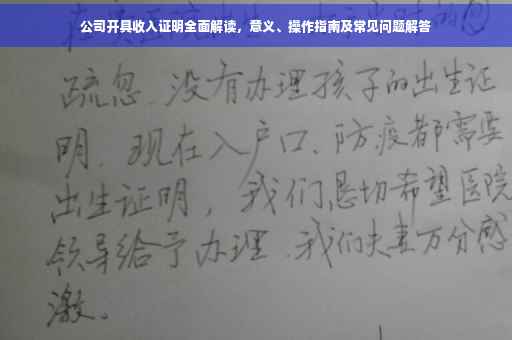 公司开具收入证明全面解读，意义、操作指南及常见问题解答
疏忽、没有办理孩子的出生证
明、现在入户口、防疫都需要
出生证明，我们恳切希望医院
领导给予办理、我们夫妻万分感
激。